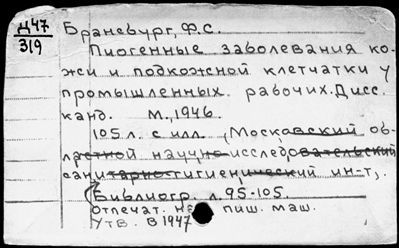 Д47
319
Браневург, Ф.С.
Пиогенные заболевания ко-
жи и подкожной клетчатки у
промышленных рабочих. Дисс.
канд. М., 1946.
105 л. с илл. (Московский об-
ластной научно-исследовательский
санитарно-гигиенический ин-т).
Библиогр. л. 95-105.
Отпечат. на пиш. маш.
Утв. в 1947